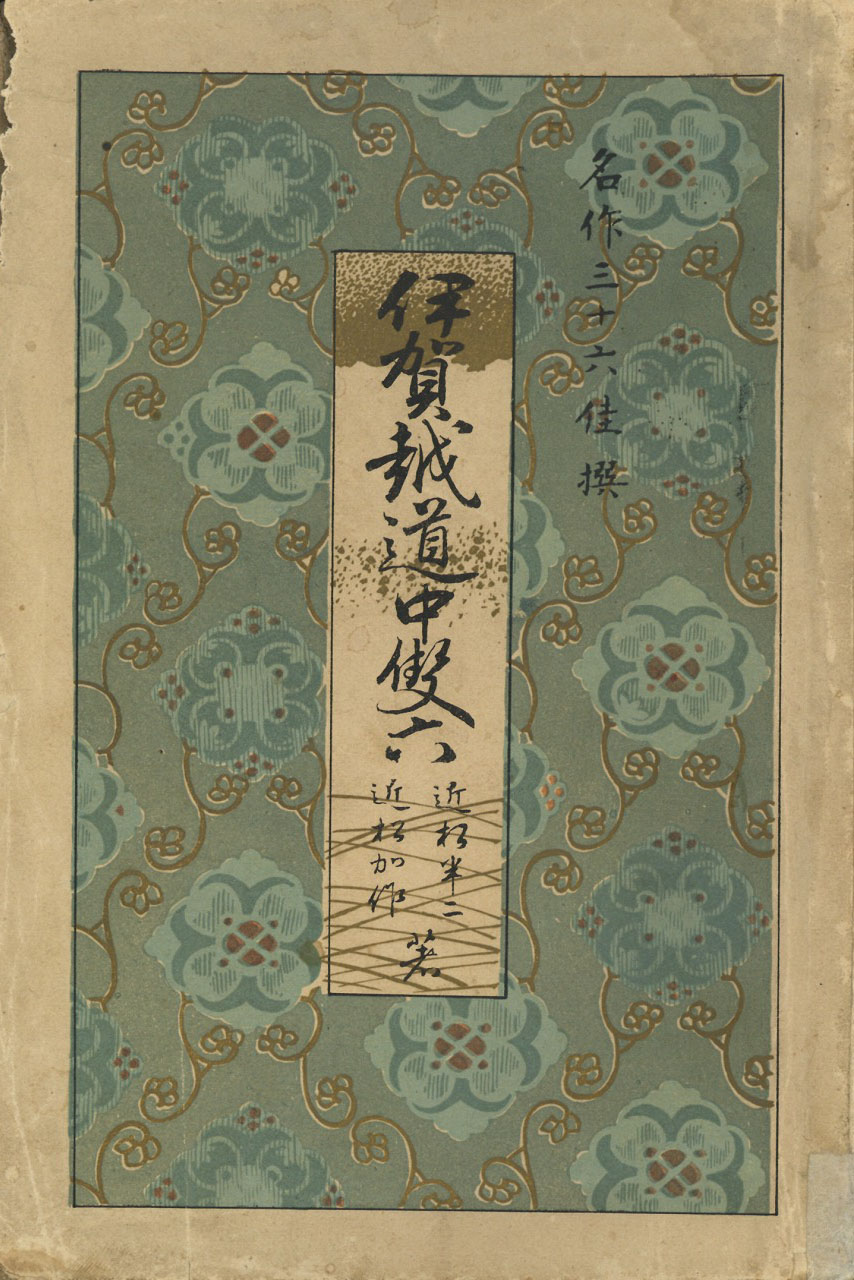 名作三十六佳撰
伊賀越道中雙六
近松半二
近松加作
著